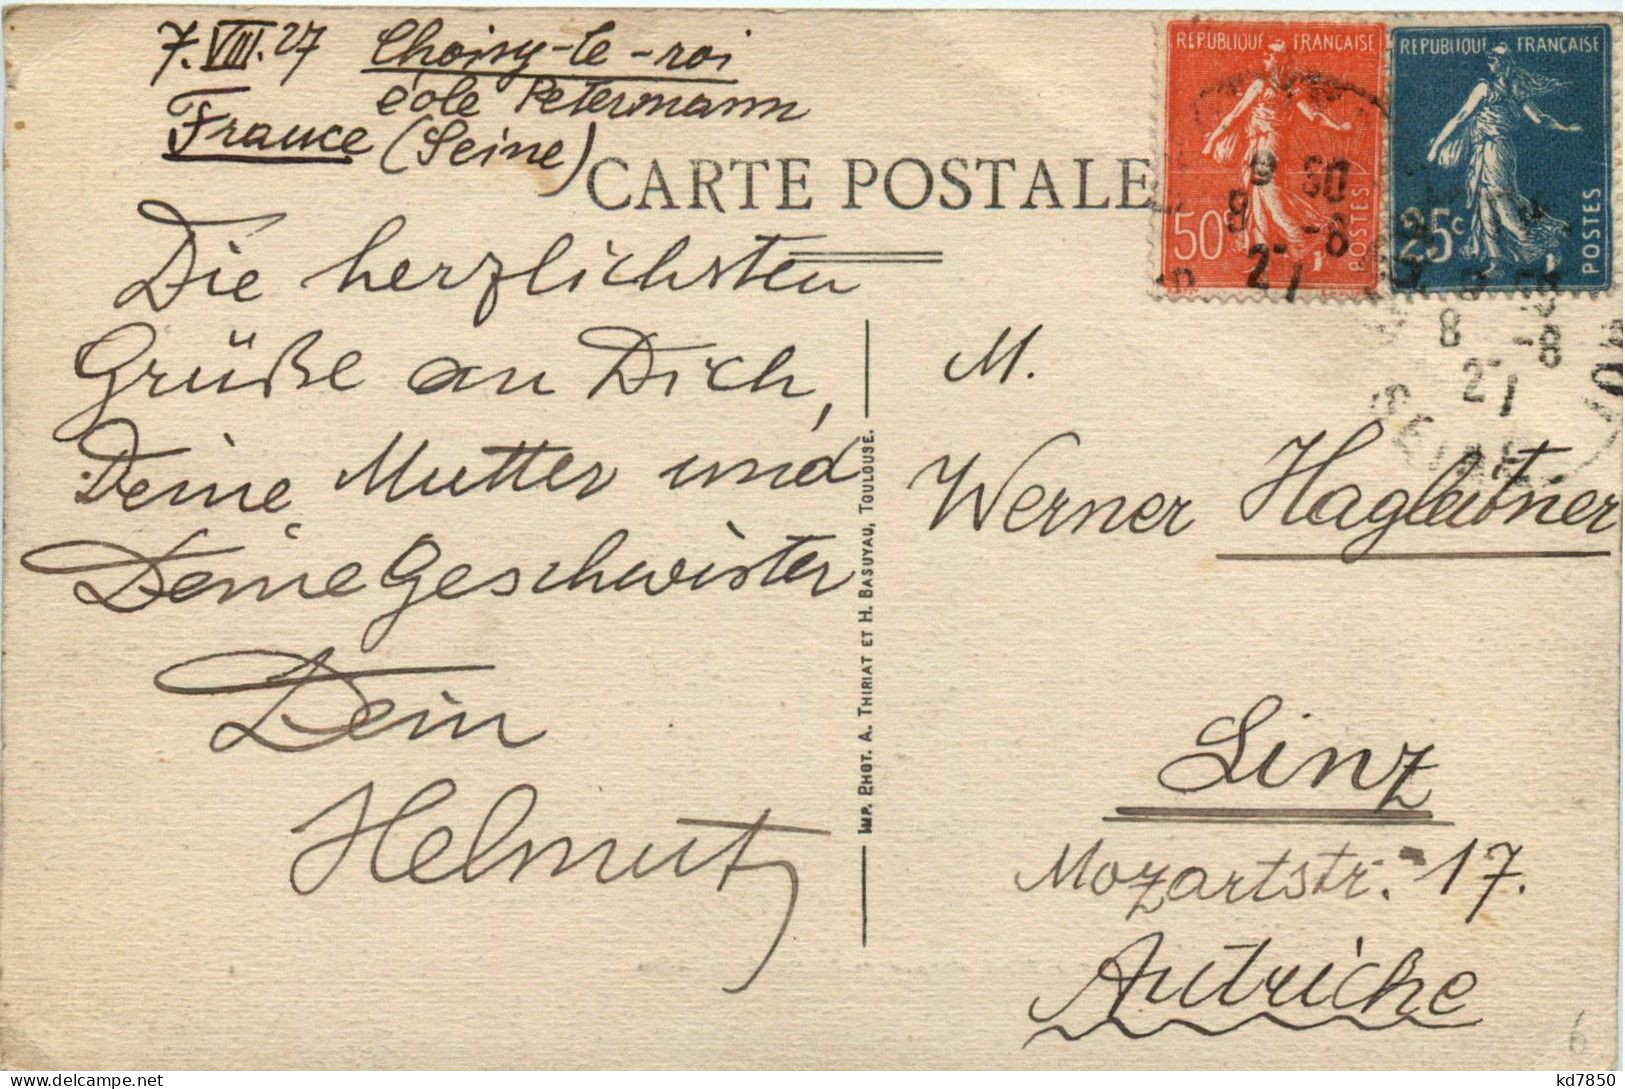 7.VIII.27 Choisy-le-roi
éole Petermann
France (Seine)
CARTE POSTALE
REPUBLIQUE FRANÇAISE
50c
POSTES
REPUBLIQUE FRANÇAISE
25c
POSTES
9 30
8 -8
27
8 -8
27
SEINE
Die herzlichsten
Grüße an Dich,
Deine Mutter und
Deine Geschwister
Dein
Helmut
IMP. PHOT. A. THIRIAT ET H. BASUYAU, TOULOUSE.
M.
Werner Hagleitner
Linz
Mozartstr. 17.
Autriche
6
kd7850